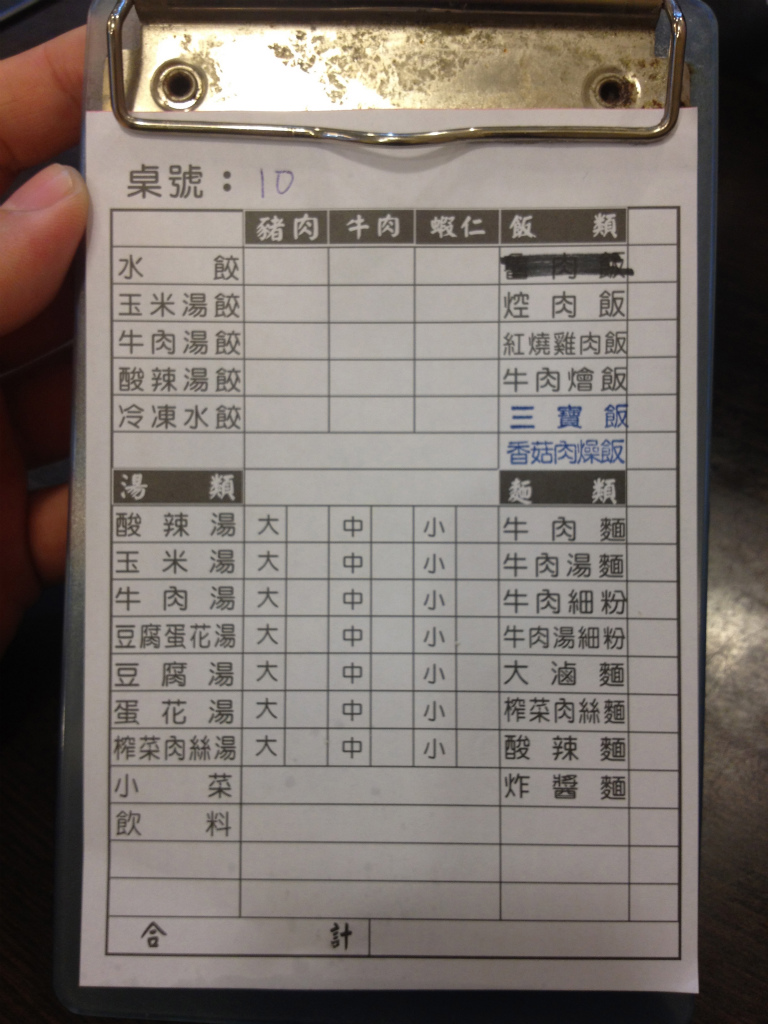 桌號：10
豬肉 牛肉 蝦仁 飯類
水餃 肉飯
玉米湯餃 焢肉飯
牛肉湯餃 紅燒雞肉飯
酸辣湯餃 牛肉燴飯
冷凍水餃 三寶飯
香菇肉燥飯
湯類 麵類
酸辣湯 大 中 小 牛肉麵
玉米湯 大 中 小 牛肉湯麵
牛肉湯 大 中 小 牛肉細粉
豆腐蛋花湯 大 中 小 牛肉湯細粉
豆腐湯 大 中 小 大滷麵
蛋花湯 大 中 小 榨菜肉絲麵
榨菜肉絲湯 大 中 小 酸辣麵
小菜 炸醬麵
飲料
合計